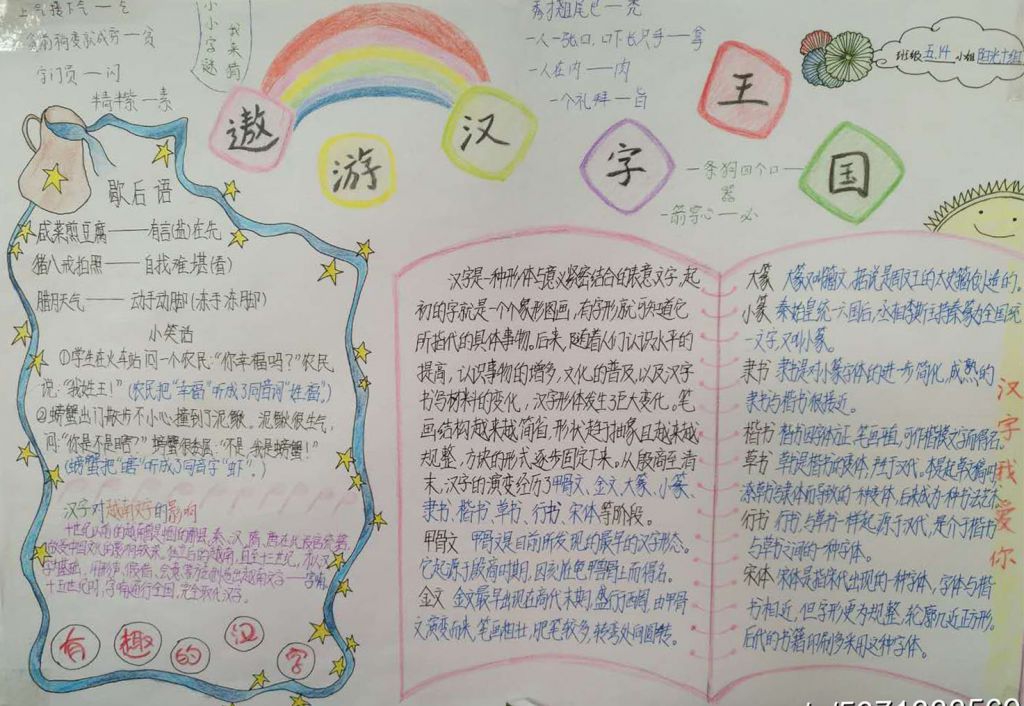 上气接下气——乞
字门员——闪
精彩——素
小小字谜
我来猜
秀才翘尾巴——秃
一人一张口，口下长只手——拿
一人在内——肉
一个礼拜——旨
遨游汉字王国
班级 五.4 小组 阳光十组
一条狗四个口——器
一箭穿心——必
歇后语
咸菜煎豆腐——有言(盐)在先
猪八戒拍照——自找难堪(看)
腊月天气——动手动脚(冻手冻脚)
小笑话
①学生在火车站问一个农民：“你幸福吗？”农民
说：“我姓王！”(农民把“幸福”听成了同音词“姓福”)
②螃蟹出门散步不小心撞到了泥鳅。泥鳅很生气，
问：“你是不是瞎？”螃蟹很委屈：“不是，我是螃蟹！”
(螃蟹把“瞎”听成了同音字“虾”。)
汉字对越南文字的影响
有趣的汉字
汉字是一种形体与意义紧密结合的表意文字，起
初的字就是一个个象形图画，有字形就可知道它
所指代的具体事物。后来，随着人们认识水平的
提高，认识事物的增多，文化的普及，以及汉字
书写材料的变化，汉字形体发生了巨大变化。笔
画结构越来越简省，形状趋于抽象且越来越
规整，方块的形式逐步固定下来。从殷商至清
末，汉字的演变经历了甲骨文、金文、大篆、小篆、
隶书、楷书、草书、行书、宋体等阶段。
甲骨文 甲骨文是目前所发现的最早的汉字形态。
它起源于殷商时期，因刻在龟甲兽骨上而得名。
金文 金文最早出现在商代末期，盛行于西周，由甲骨
文演变而来，笔画粗壮，肥笔较多，转弯处间圆转。
大篆 大篆又叫籀文，据说是周文王的太史籀创造的。
小篆 秦始皇统一六国后，丞相李斯主持秦篆为全国统
一文字，又叫小篆。
隶书 隶书是对小篆字体的进一步简化，成熟的
隶书与楷书很接近。
楷书 楷书因字体方正、笔画平直，可作楷模文字而得名。
草书 草书是楷书的变体，产于汉代。
行书 行书与草书一样起源于汉代，是介于楷书
与草书之间的一种字体。
宋体 宋体是指宋代出现的一种字体，字体与楷
书相近，但字形更为规整，轮廓几近正方形。
后代的书籍印刷多采用这种字体。
汉字我爱你